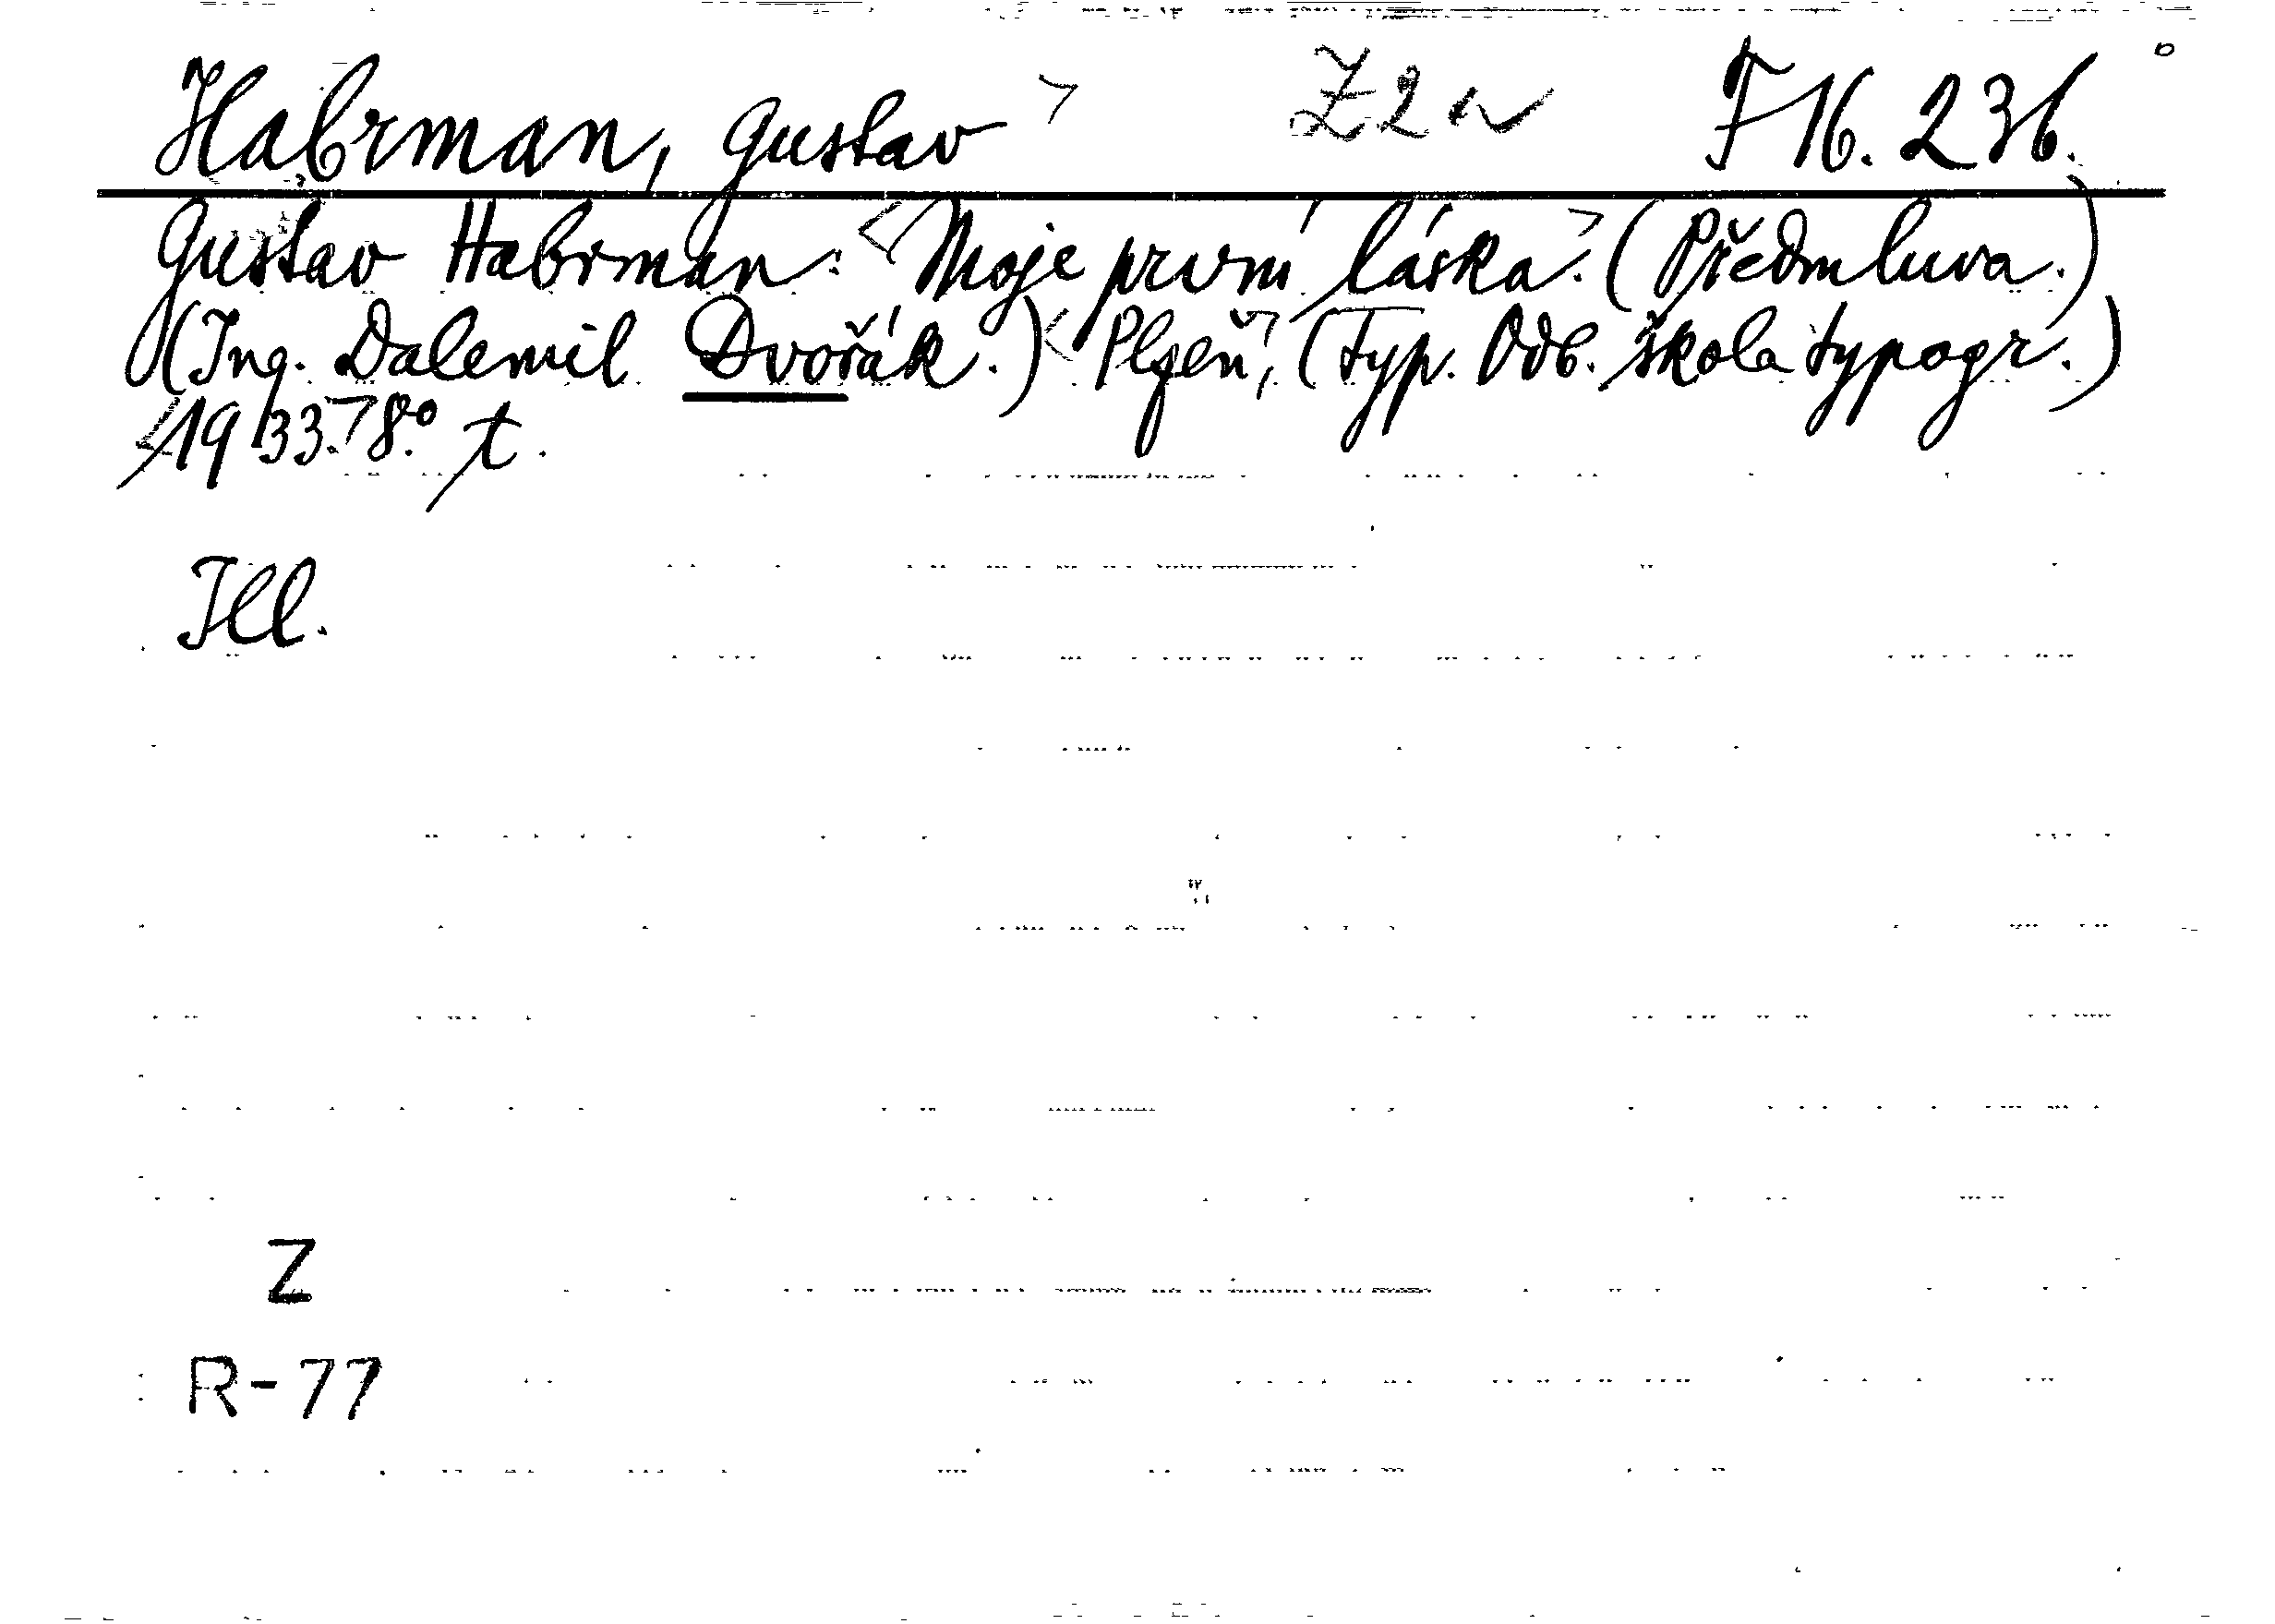 Habrman, Gustav > Z2 F 16.236.
Gustav Habrman: <Moje první láska.> (Předmluva.)
(Ing. Dalemil Dvořák.) <Plzeň,> (Typ. Odb. škola typogr.)
<1933.> 8.° t.
Ill.
Z
R-77